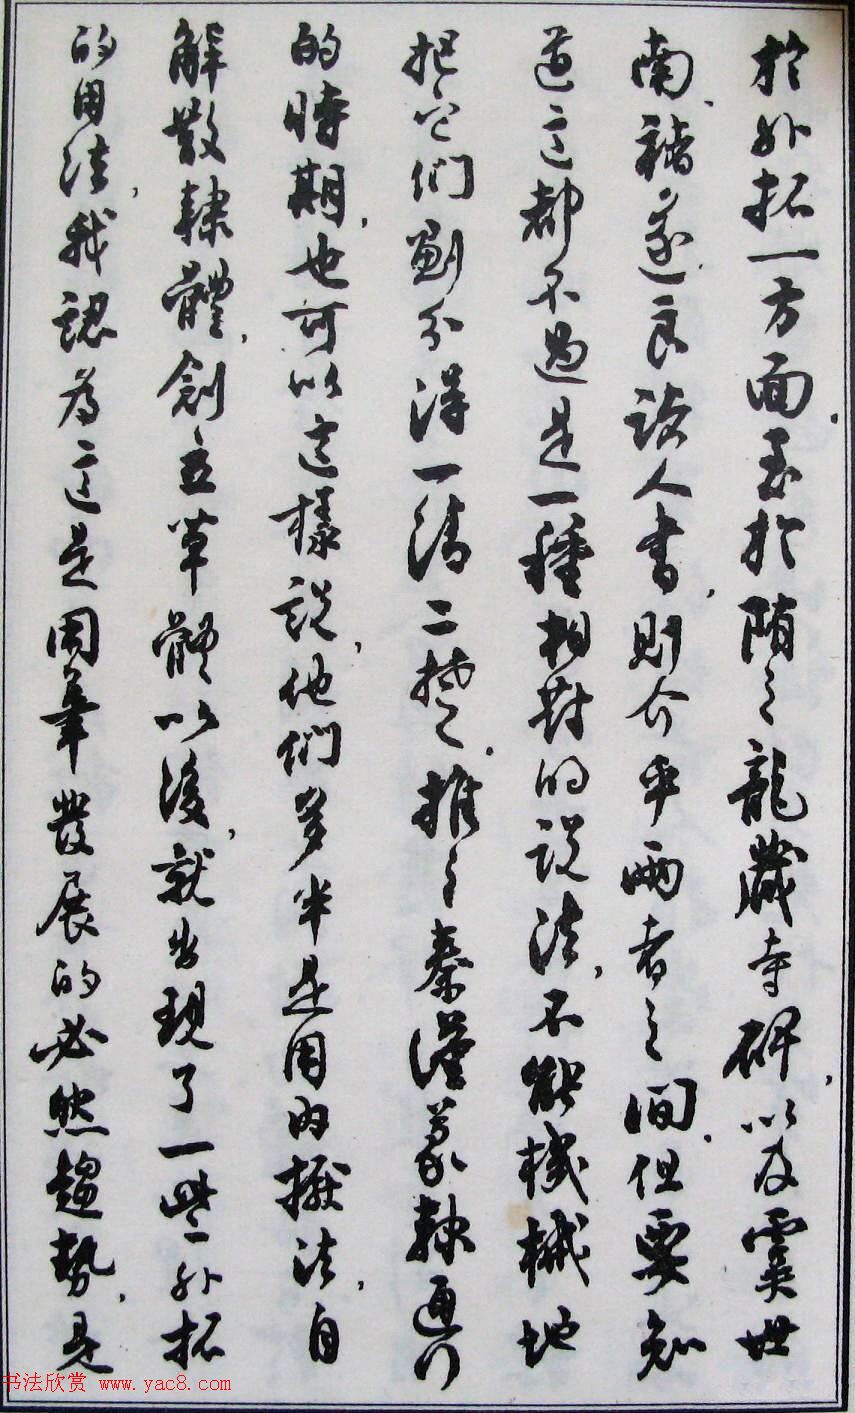 於外拓一方面。至於隋之龍藏寺碑，以及虞世
南、褚遂良諸人書，則介乎兩者之間。但要知
道這都不過是一種相對的說法，不能機械地
把它們劃分得一清二楚。推之秦漢篆隸通行
的時期，也可以這樣說，他們多半是用內擫法，自
解散隸體，創立草體以後，就出現了一些外拓
的用法，我認為這是用筆發展的必然趨勢，是
书法欣赏 www.yac8.com